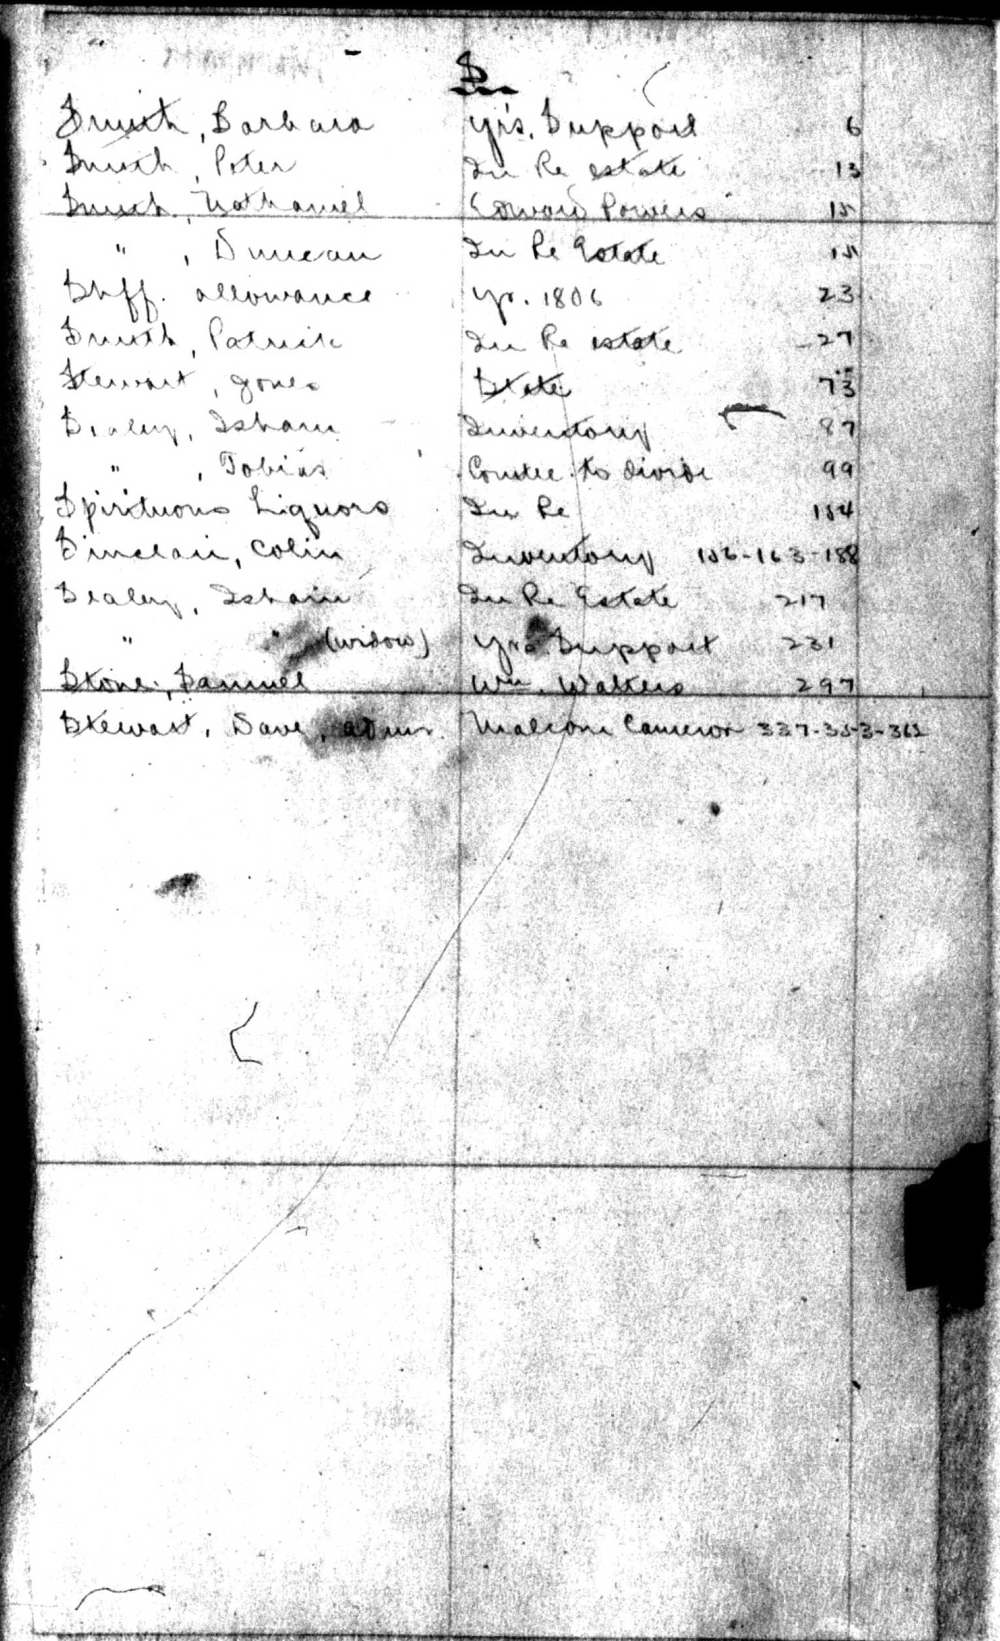 S
Smith, Barbara yrs. Support 6
Smith, Peter In Re estate 13
Smith, Nathaniel Edward Powers 15
" , Duncan In Re Estate 151
Shff. allowance yr. 1806 23
Smith, Patrick In Re estate 27
Stewart, Jones State 73
Sealey, Isham Inventory 87
" , Tobias Comtee to divide 99
Spirituous Liquors In Re 154
Sinclair, Colin Inventory 156-163-188
Sealey, Isham In Re Estate 217
" " (widow) yrs Support 231
Stone, Samuel Wm. Walters 297
Stewart, Dave, admr. Malcom Cameron 337-353-362